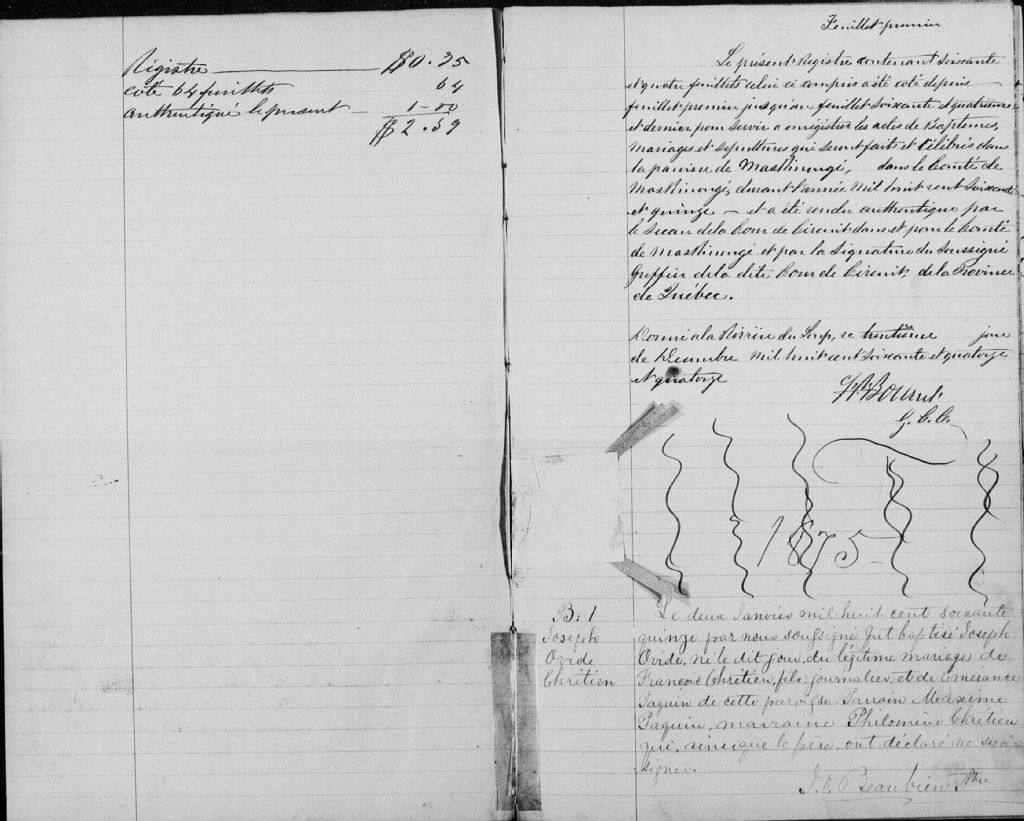 Régistre $0.35
coté 64 feuillets 64
authentiqué le présent 1-00
$2.59
Feuillet premier
Le présent Registre contenant soixante
et quatre feuillets celui ci compris a été coté depuis
feuillet premier jusqu'au feuillet soixante et quatrième
et dernier pour servir a enregistrer les actes de Baptemes,
Mariages et sepultures qui seront faits et célébrés dans
la paroisse de Maskinongé, dans le Comté de
Maskinongé, durant l'année mil huit cent soixante
et quinze — et a été rendu authentique par
le Sceau de la Cour de Circuit dans et pour le Comté
de Maskinongé et par la signature du Soussigné
Greffier de la dite Cour de Circuit, de la Province
de Québec.
Donné a la Rivière du Loup, ce trentième jour
de Décembre mil huit cent soixante et quatorze
et quatorze
G. C. C.
1875
B: 1
Joseph
Ovide
Chrétien
Le deux Janvier mil huit cent soixante
quinze par nous soussigné fut baptisé Joseph
Ovide, né le dit jour, du légitime mariage de
François Chrétien, fils, journalier, et de Emerance
Paquin de cette paroisse. Parrain Maxime
Paquin, marraine Philomène Chrétien
qui, ainsi que le père, ont déclaré ne savoir
signer.
J. O. Beaubien Ptre